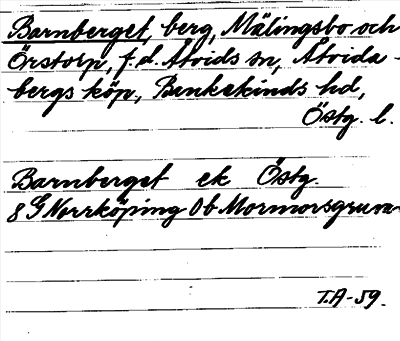 Barnberget, berg, Mälingsbo och
Örstorp, f.d. Åtvids sn, Åtvida-
bergs köp., Bankekinds hd,
Östg. l.
Barnberget ek Östg.
8 G Norrköping 0b Mormorsgruva-
T.A-59.